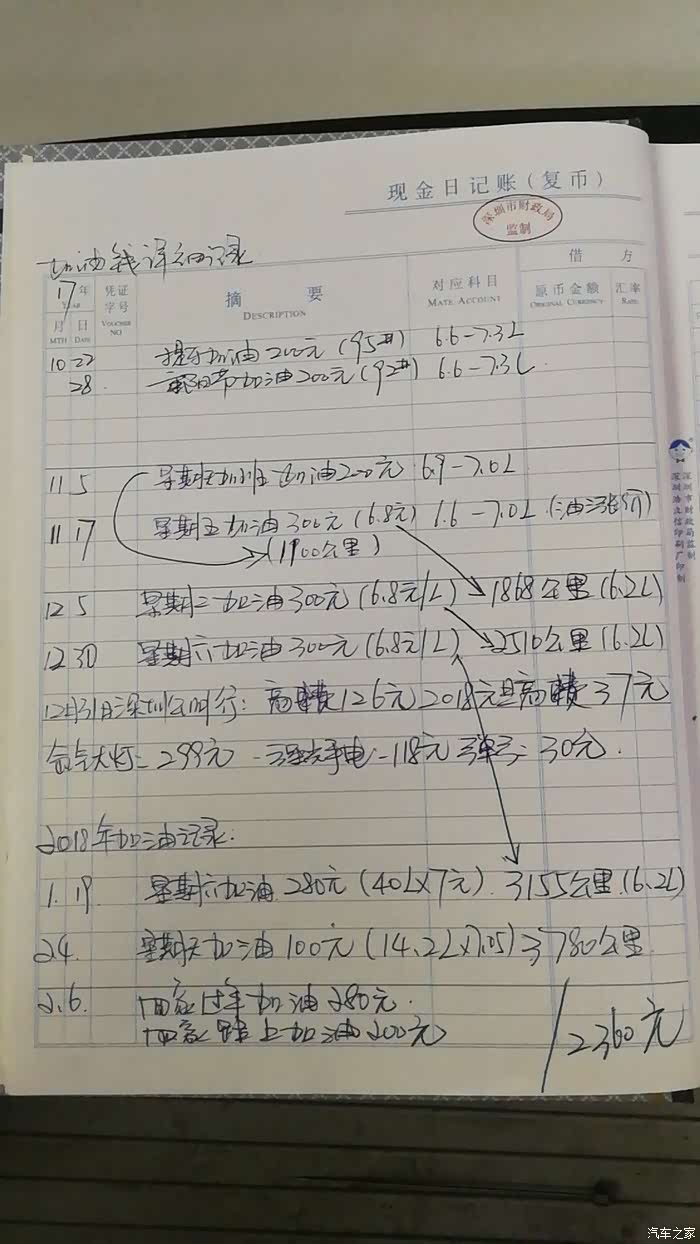 现金日记账(复币)
深圳市财政局
监制
加油钱详细记录
17年
YEAR
凭证
字号
VOUCHER
NO
摘 要
DESCRIPTION
对应科目
MATE ACCOUNT
借 方
原币金额
ORIGINAL CURRENCY
汇率
RATE
月 日
MTH DATE
10 22 提车加油200元(95#) 6.6-7.3L
28 重阳节加油200元(92#) 6.6-7.3L
11 5 星期天加班加油200元 6.9-7.0L
11 17 星期五加油300元(6.8元) 6.6-7.0L(油涨价)
(1900公里)
12 5 星期二加油300元(6.8元/L) 1868公里(6.2L)
12 30 星期六加油300元(6.8元/L) 2510公里(6.2L)
12月31日深圳行:高速费126元2018元旦高速费37元
氙气大灯:299元 强光手电:118元 30元.
2018年加油记录:
1.19 星期六加油 280元(40L×7元). 3155公里(6.2L)
2.4. 星期天加油100元(14.2L×7.05)3780公里
2.6. 回家过年加油280元.
回家路上加油200元 2360元
深圳市财政局监制
深圳浩立信印刷厂印制
汽车之家